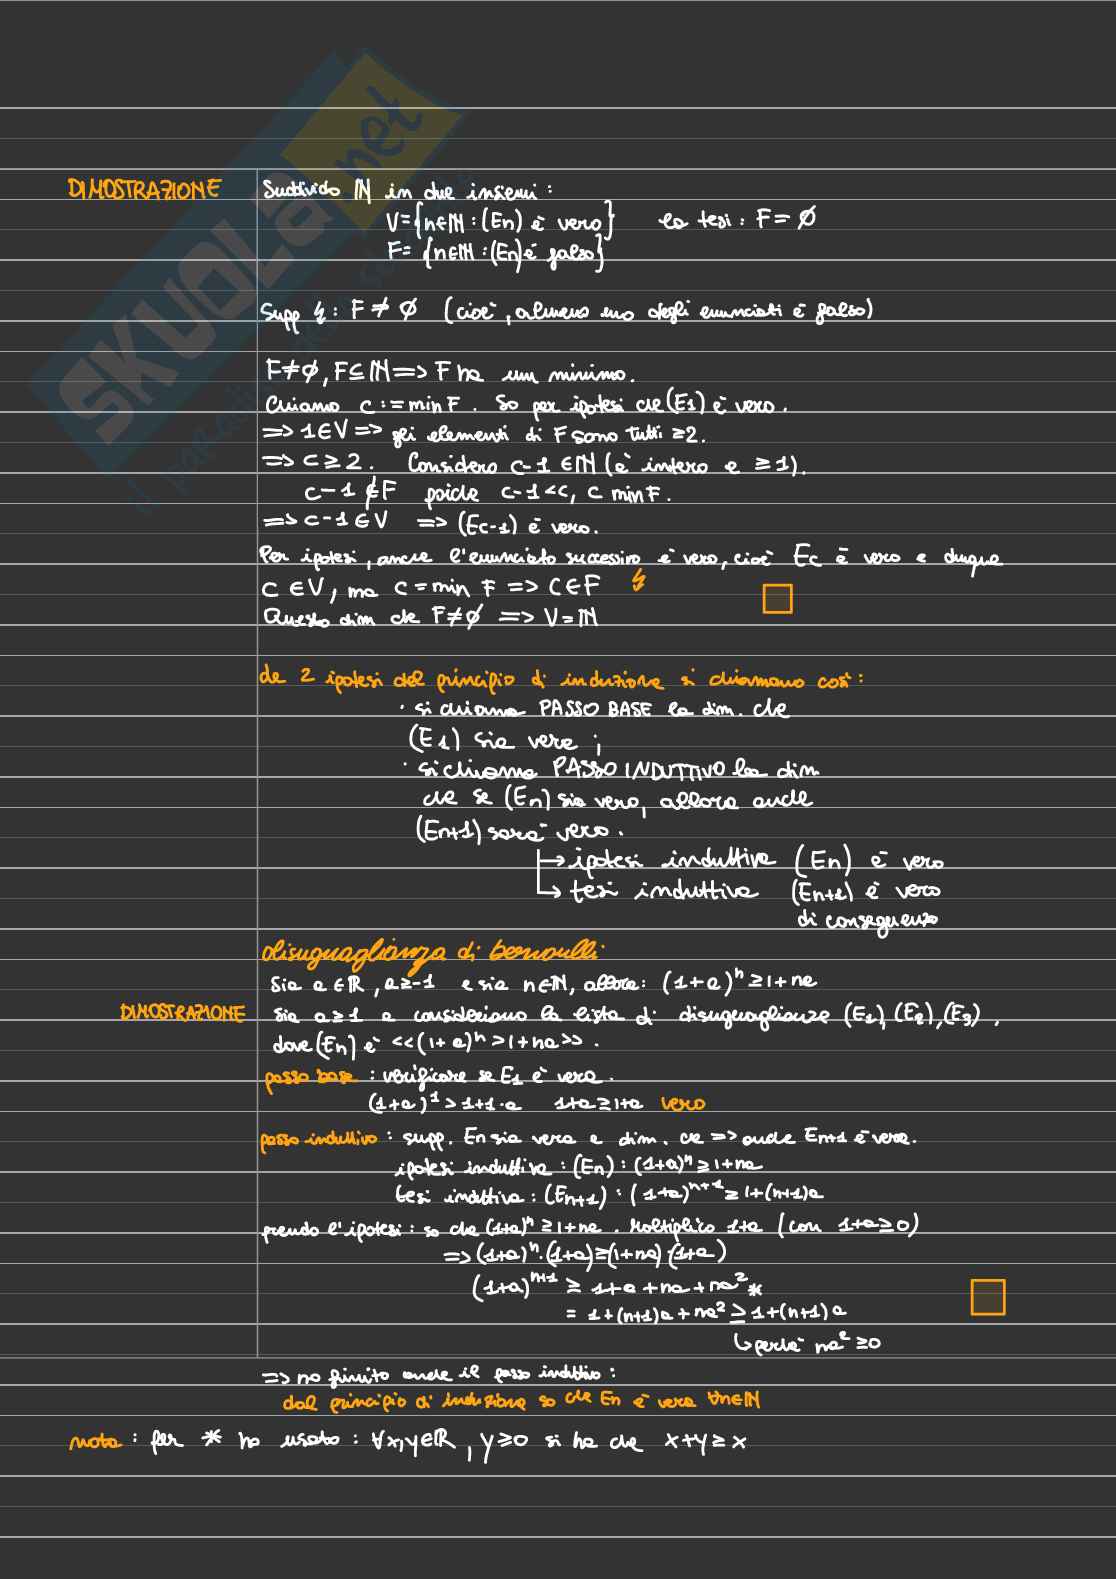 SKUOLA.net
DIMOSTRAZIONE Suddivido ℕ in due insiemi :
V = {n∈ℕ : (En) è vero} la tesi : F = ∅
F = {n∈ℕ : (En) è falso}
Supp ↯ : F ≠ ∅ (cioè, almeno uno degli enunciati è falso)
F≠∅, F⊆ℕ => F ha un minimo.
Chiamo c := min F . So per ipotesi che (E1) è vero.
=> 1∈V => gli elementi di F sono tutti ≥2.
=> c ≥ 2. Considero c-1 ∈ℕ (è intero e ≥1).
c-1 ∉F poiché c-1<c, c min F.
=> c-1∈V => (Ec-1) è vero.
Per ipotesi, anche l'enunciato successivo è vero, cioè Ec è vero e dunque
c ∈V, ma c = min F => c∈F ↯
Questo dim che F≠∅ => V=ℕ
le 2 ipotesi del principio di induzione si chiamano così :
· si chiama PASSO BASE la dim. che
(E1) sia vera ;
· si chiama PASSO INDUTTIVO la dim
che se (En) sia vero, allora anche
(En+1) sarà vero.
→ ipotesi induttiva (En) è vero
→ tesi induttiva (En+1) è vero
di conseguenza
disuguaglianza di bernoulli
Sia a∈ℝ, a≥-1 e sia n∈ℕ, allora: (1+a)ⁿ ≥ 1+na
DIMOSTRAZIONE Sia a≥1 e consideriamo la lista di disuguaglianze (E1), (E2), (E3) ,
dove (En) è <<(1+a)ⁿ > 1+na>> .
passo base : verificare se E1 è vera.
(1+a)¹ > 1+1·a 1+a≥1+a vero
passo induttivo : supp. En sia vera e dim. che => anche En+1 è vera.
ipotesi induttiva : (En) : (1+a)ⁿ ≥ 1+na
tesi induttiva : (En+1) : (1+a)ⁿ⁺¹ ≥ 1+(n+1)a
prendo l'ipotesi : so che (1+a)ⁿ ≥ 1+na . Moltiplico 1+a (con 1+a≥0)
=> (1+a)ⁿ·(1+a)≥(1+na)·(1+a)
(1+a)ⁿ⁺¹ ≥ 1+a+na+na² *
= 1+(n+1)a+na² ≥ 1+(n+1)a
↳ perché na² ≥0
=> ho finito anche il passo induttivo :
dal principio di induzione so che En è vera ∀n∈ℕ
nota : per * ho usato : ∀x,y∈ℝ, y≥0 si ha che x+y≥x